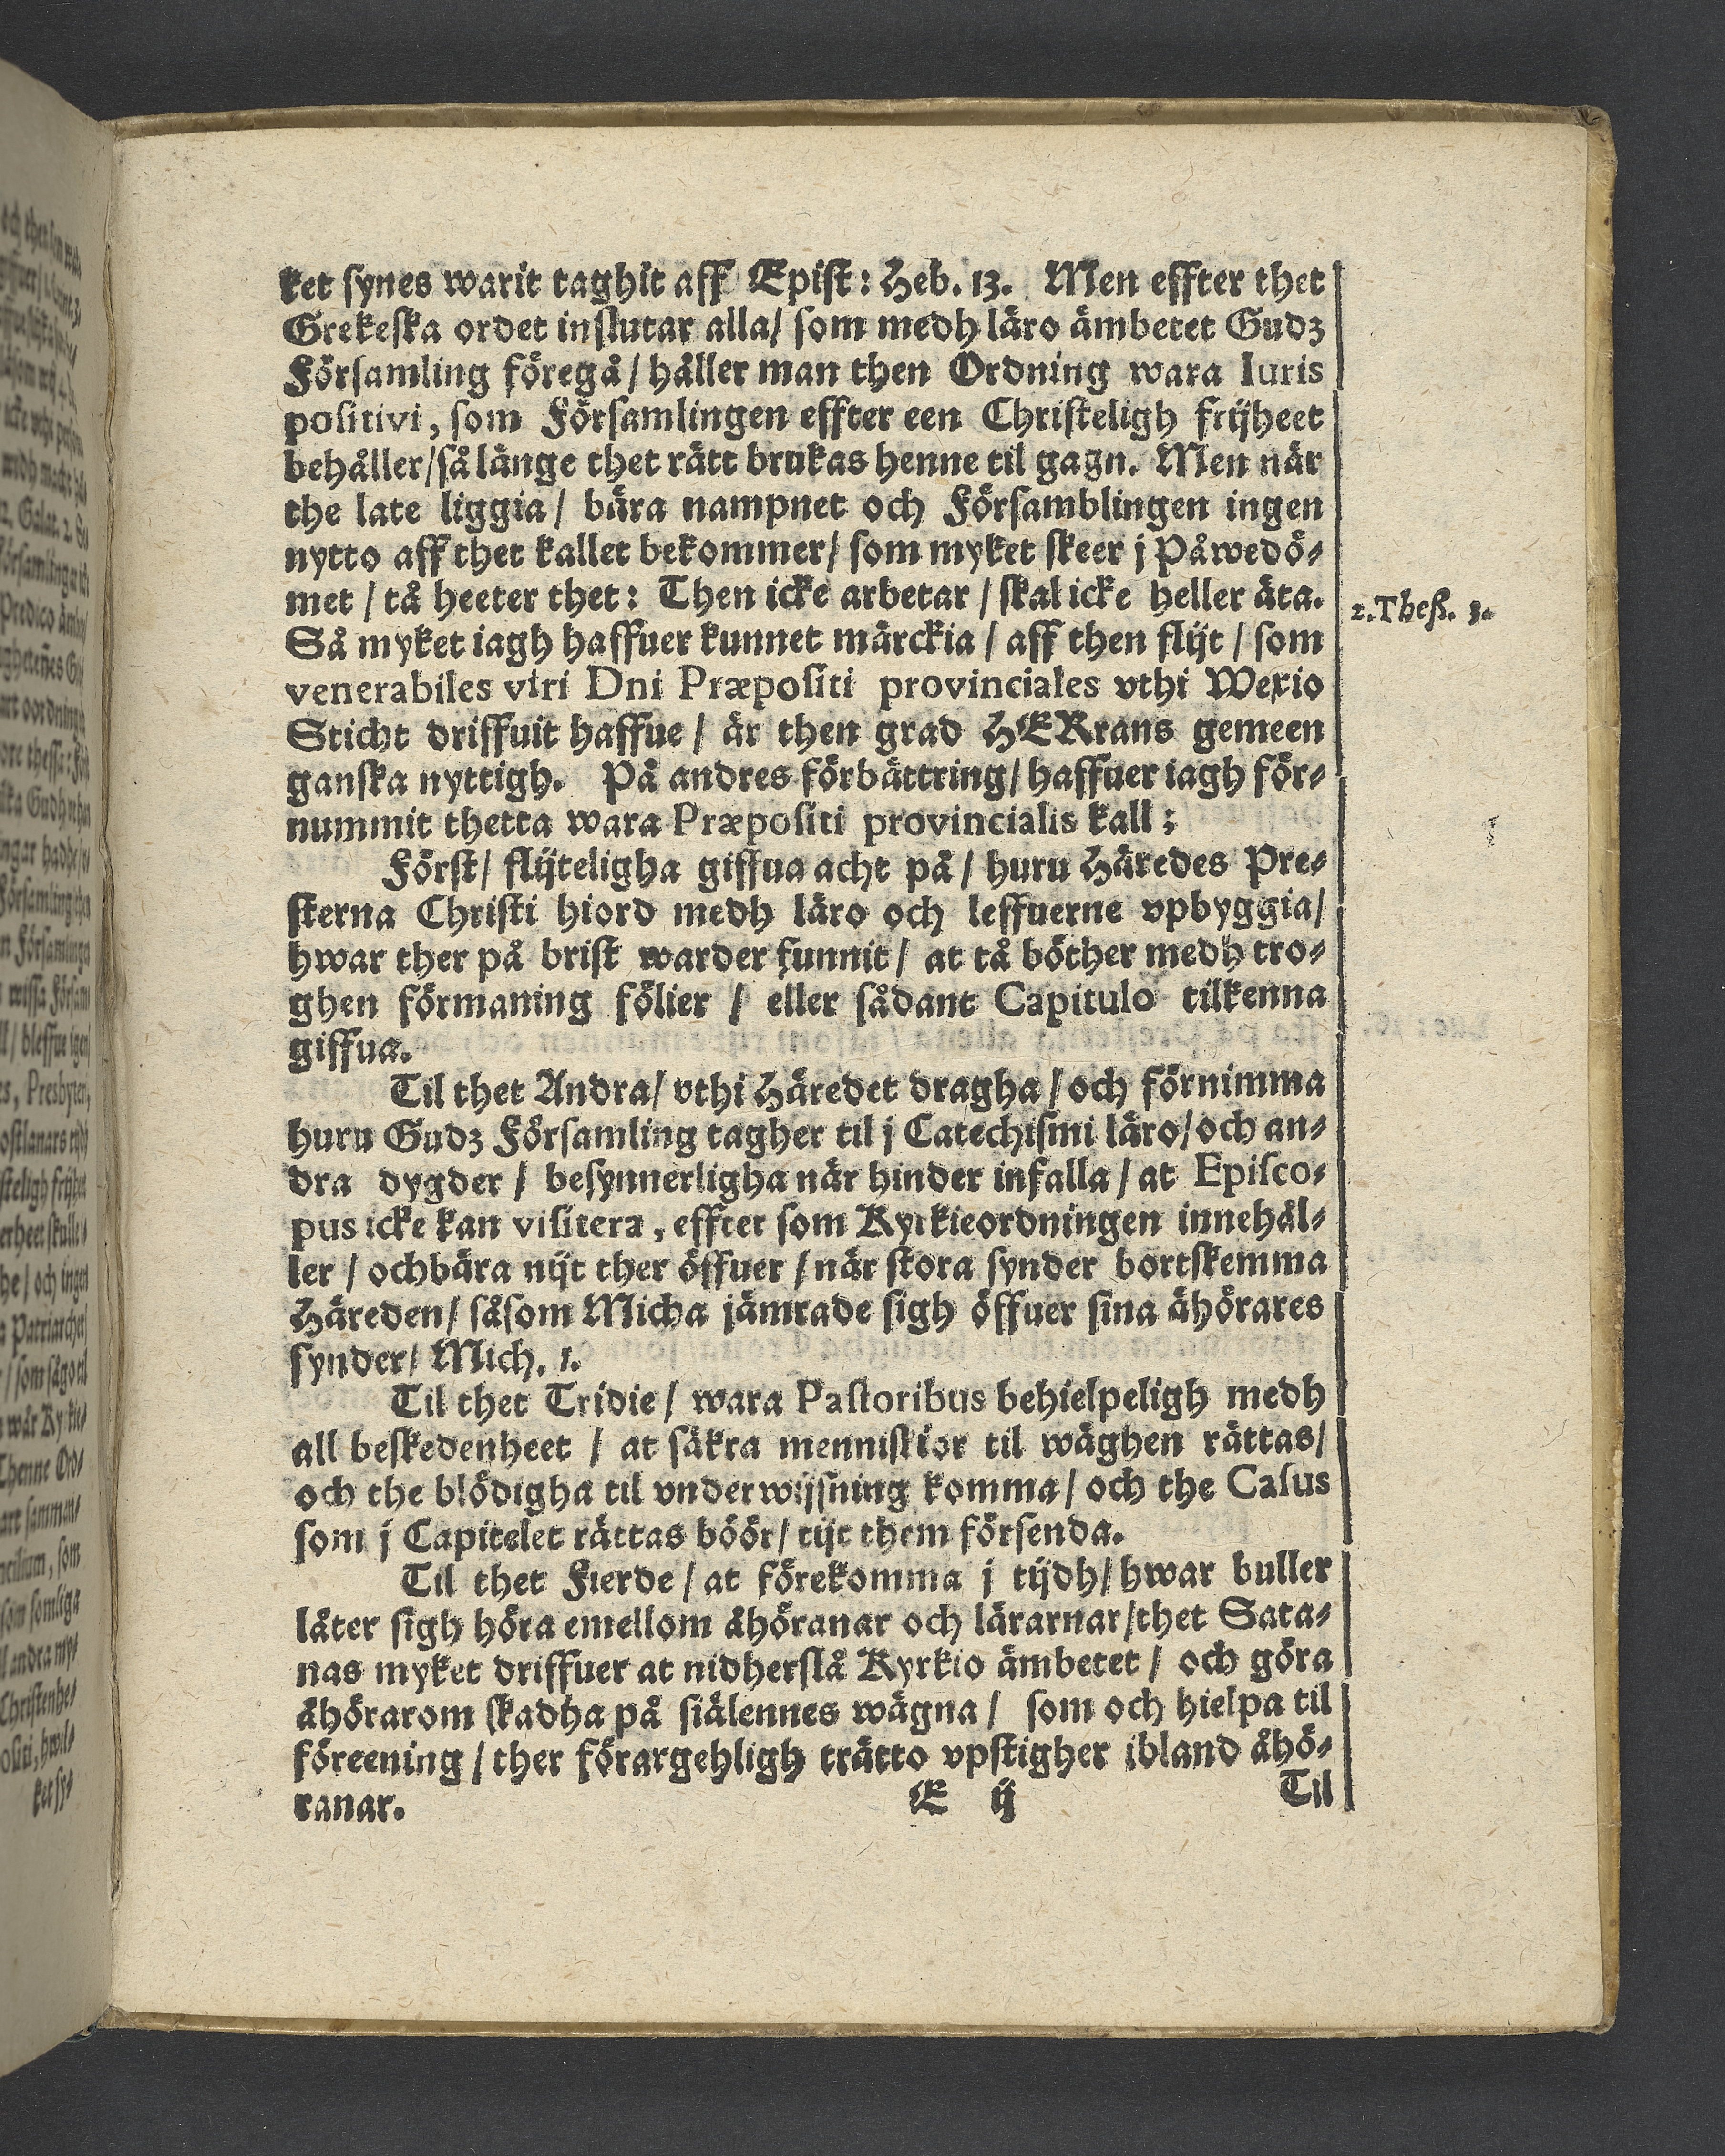 ket synes warit taghit aff Epist: Heb. 13. Men effter thet
Grekeska ordet inslutar alla/ som medh läro ämbetet Gudz
Församling föregå/ håller man then Ordning wara Iuris
positivi, som Församlingen effter een Christeligh frijheet
behåller/så länge thet rätt brukas henne til gagn. Men när
the late liggia/ bära nampnet och Församblingen ingen
nytto aff thet kallet bekommer/ som myket skeer j Påwedö-
met / tå heeter thet: Then icke arbetar / skal icke heller äta.
2. Theß. 3.
Så myket iagh haffuer kunnet märckia / aff then flijt / som
venerabiles viri Dni Præpositi provinciales vthi Wexio
Sticht driffuit haffue / är then grad HERrans gemeen
ganska nyttigh. På andres förbättring/ haffuer iagh för-
nummit thetta wara Præpositi provincialis kall:
Först/ flijteligha giffua acht på / huru Häredes Pre-
sterna Christi hiord medh läro och leffuerne vpbyggia/
hwar ther på brist warder funnit / at tå böther medh tro-
ghen förmaning fölier / eller sådant Capitulo tilkenna
giffua.
Til thet Andra/ vthi Häredet dragha / och förnimma
huru Gudz Församling tagher til j Catechismi läro/och an-
dra dygder / besynnerligha när hinder infalla / at Episco-
pus icke kan visitera, effter som Kyrkieordningen innehål-
ler / ochbära nijt ther öffuer / när stora synder bortskemma
Häreden/ såsom Micha jämrade sigh öffuer sina åhörares
synder/ Mich. 1.
Til thet Tridie / wara Pastoribus behielpeligh medh
all beskedenheet / at säkra menniskior til wäghen rättas/
och the blödigha til vnderwijsning komma / och the Casus
som j Capitelet rättas böör/ tijt them försenda.
Til thet Fierde / at förekomma j tijdh/ hwar buller
låter sigh höra emellom åhöranar och lärarnar/thet Sata-
nas myket driffuer at nidherslå Kyrkio ämbetet / och göra
åhörarom skadha på siälennes wägna / som och hielpa til
föreening / ther förargehligh trätto vpstigher ibland åhö-
ranar.
E ij
Til